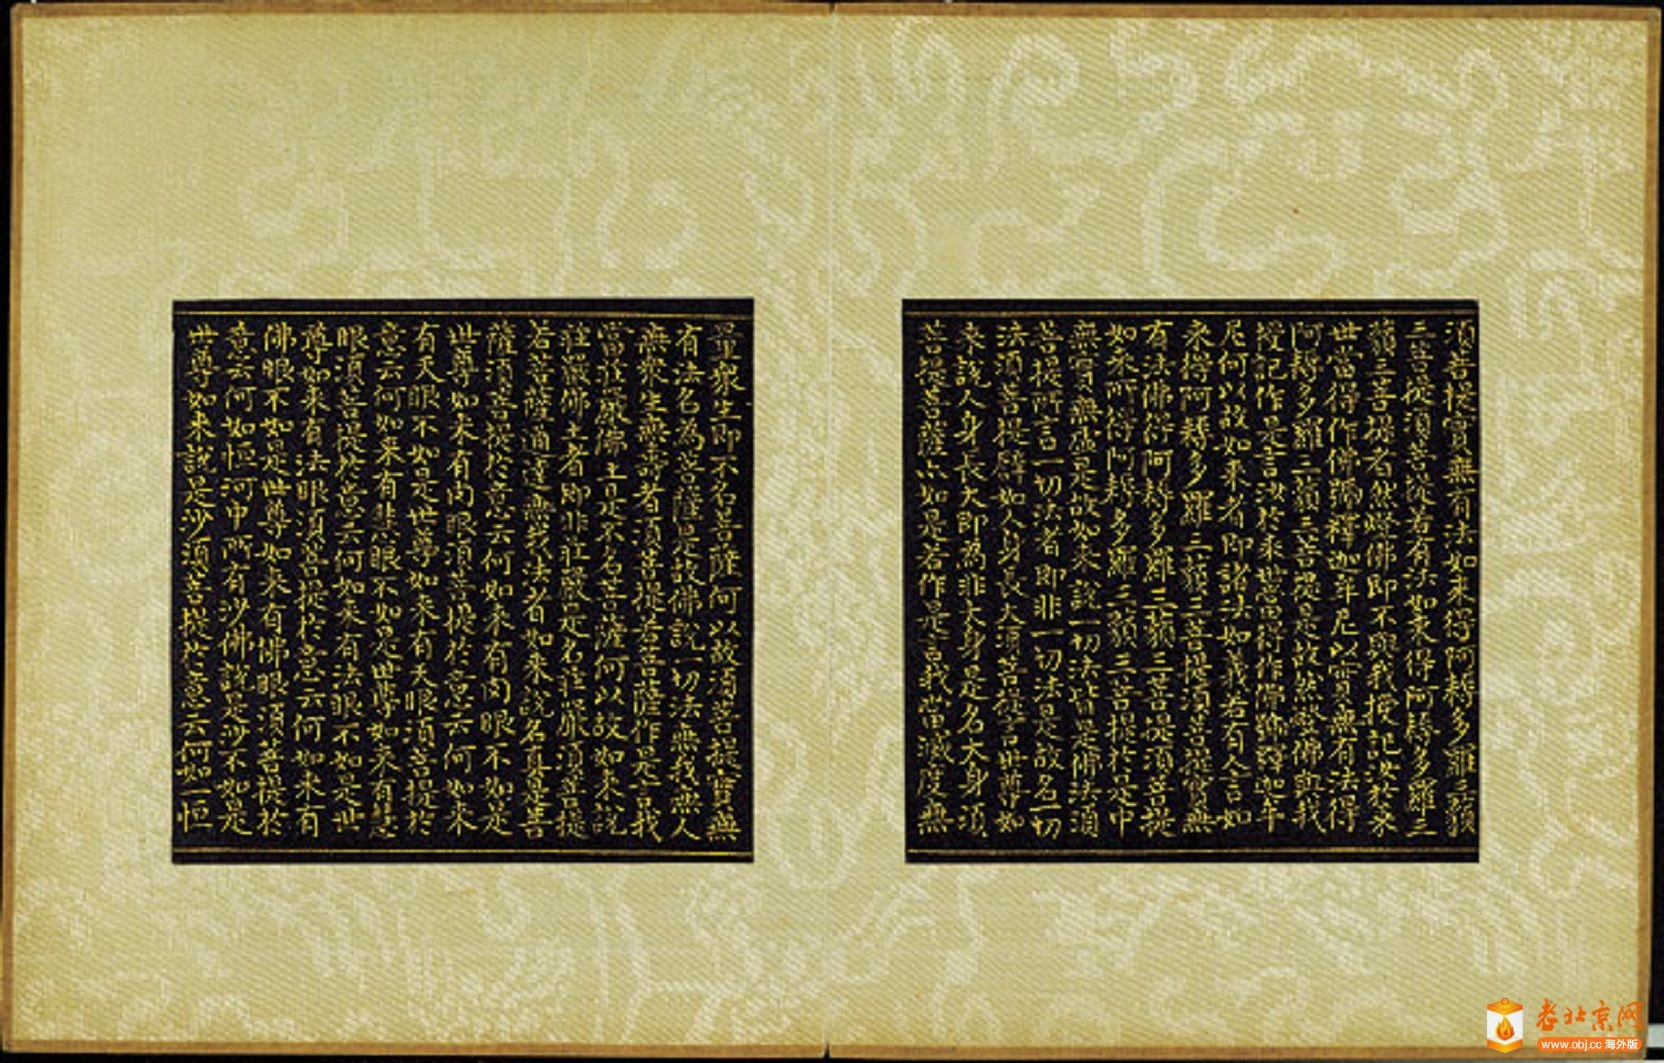 須菩提實無有法如來得阿耨多羅三藐
三菩提須菩提若有法如來得阿耨多羅三
藐三菩提者然燈佛即不與我授記汝於來
世當得作佛號釋迦牟尼以實無有法得
阿耨多羅三藐三菩提是故然燈佛與我
授記作是言汝於來世當得作佛號釋迦牟
尼何以故如來者即諸法如義若有人言如
來得阿耨多羅三藐三菩提須菩提實無
有法佛得阿耨多羅三藐三菩提須菩提
如來所得阿耨多羅三藐三菩提於是中
無實無虛是故如來說一切法皆是佛法須
菩提所言一切法者即非一切法是故名一切
法須菩提譬如人身長大須菩提言世尊如
來說人身長大即為非大身是名大身須
菩提菩薩亦如是若作是言我當滅度無
量眾生即不名菩薩何以故須菩提實無
有法名為菩薩是故佛說一切法無我無人
無眾生無壽者須菩提若菩薩作是言我
當莊嚴佛土是不名菩薩何以故如來說
莊嚴佛土者即非莊嚴是名莊嚴須菩提
若菩薩通達無我法者如來說名真是菩
薩須菩提於意云何如來有肉眼不如是
世尊如來有肉眼須菩提於意云何如來
有天眼不如是世尊如來有天眼須菩提於
意云何如來有慧眼不如是世尊如來有慧
眼須菩提於意云何如來有法眼不如是世
尊如來有法眼須菩提於意云何如來有
佛眼不如是世尊如來有佛眼須菩提於
意云何如恒河中所有沙佛說是沙不如是
世尊如來說是沙須菩提於意云何如一恒
老北京网
www.obj.cc 海外版